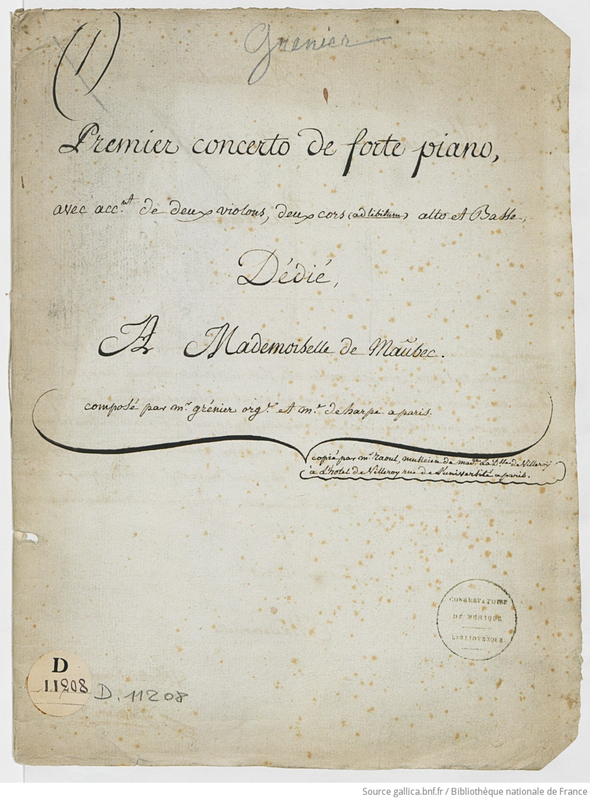 (1)
Grenier
Premier concerto de forte piano,
avec acc.nt de deux violons, deux cors (ad libitum) alto et Basse,
Dédié,
A Mademoiselle de Maubec.
composé par mr. grénier orgte. et mr. de harpe a paris.
copié par mr. raoul, musicien de made. la D.sse de Villeroy
à l'hotel de Villeroy rue de l'université a paris.
CONSERVATOIRE
DE MUSIQUE
BIBLIOTHEQUE
D
11208
D. 11208
Source gallica.bnf.fr / Bibliothèque nationale de France